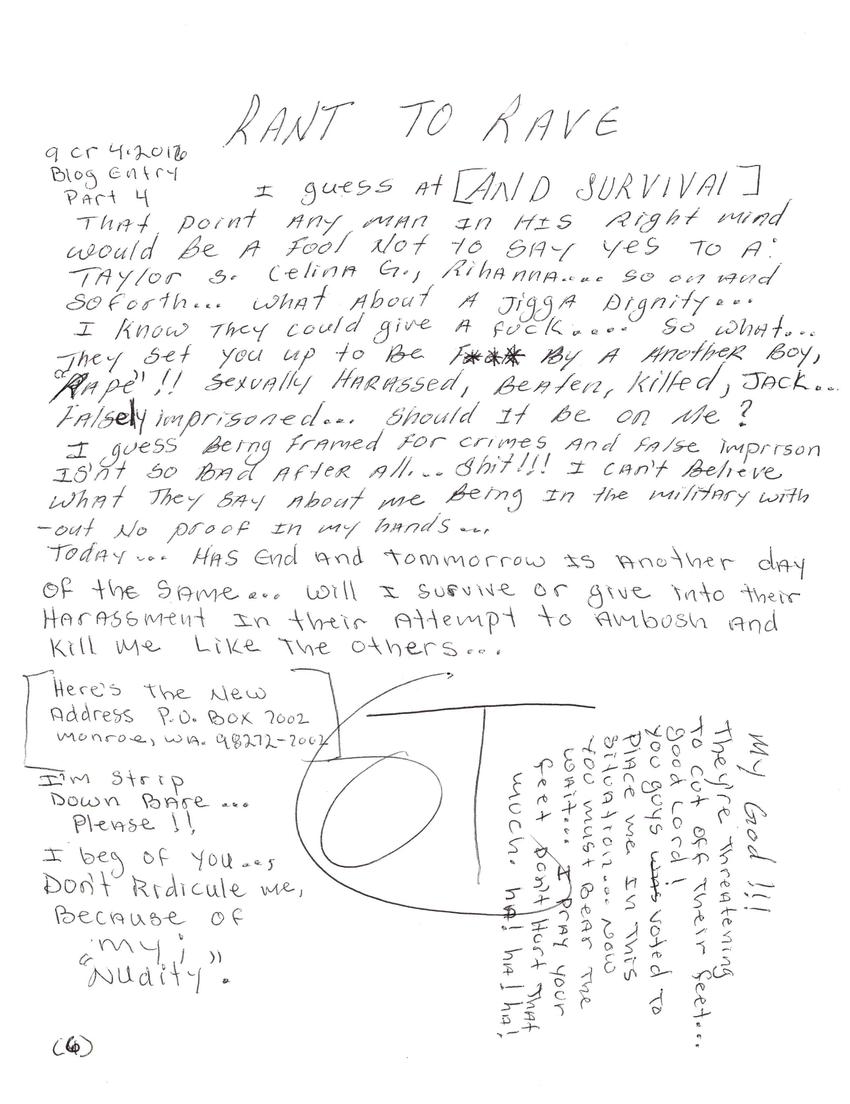 RANT TO RAVE
9 cr 4.2016
Blog Entry
Part 4
I guess At [AND SURVIVAl]
THAT point ANY MAN IN HIS Right mind
would BE A Fool Not TO SAY YES TO A:
TAYlor S. Celina G., RiHANNA.... so on and
Soforth... What About A Jigga Dignity...
I Know They could give A fuck..... So what...
They Set you up to Be F*** By A Another Boy,
"Rape" !! Sexually Harassed, Beaten, Killed, JACK...
Falsely imprisoned... Should It be on Me?
I guess Being Framed For crimes And False imprison
IS'nt so Bad After All... Shit!!! I can't Believe
What They say About me Being In the military with
-out No proof In my hands...
Today... HAS End And tommorrow Is Another day
of the SAME... will I survive or give into their
Harassment In their Attempt to Ambosh And
Kill me Like The others...
Here's the New
Address P.O. Box 7002
Monroe, WA. 98272-7002
I'm Strip
Down Bare ...
Please !!,
I beg of you...,
Don't Ridicule me,
Because of
my;
"Nudity".
My God !!!
They're Threatening
To cut off Their feet...
good Lord!
You guys was voted to
Place me In This
Situation... Now
You must Bear The
wait... I pray your
feet Don't Hurt That
much. ha! ha! ha!
(6)